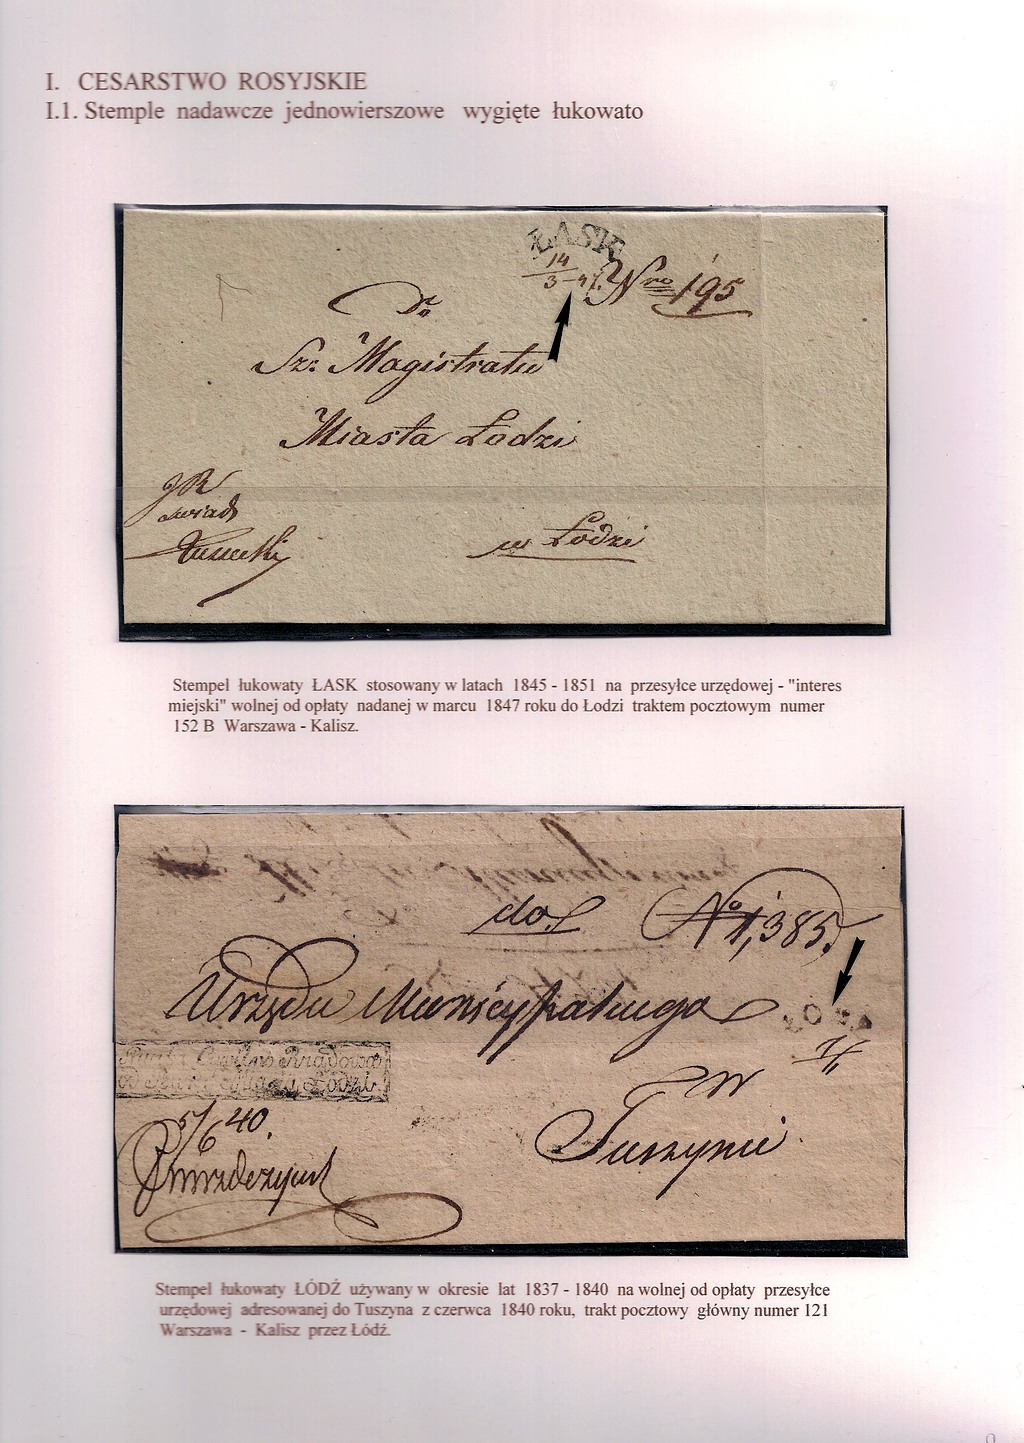 I. CESARSTWO ROSYJSKIE
I.1. Stemple nadawcze jednowierszowe wygięte łukowato
ŁASK
14
3 47. Nro 195
Do
Sz: Magistratu
Miasta Łodzi
w Łodzi
Stempel łukowaty ŁASK stosowany w latach 1845 - 1851 na przesyłce urzędowej - "interes
miejski" wolnej od opłaty nadanej w marcu 1847 roku do Łodzi traktem pocztowym numer
152 B Warszawa - Kalisz.
do.
No 1,385.
Urzędu Municypalnego
w
Tuszynie
5/6 40.
Stempel łukowaty ŁÓDŹ używany w okresie lat 1837 - 1840 na wolnej od opłaty przesyłce
urzędowej adresowanej do Tuszyna z czerwca 1840 roku, trakt pocztowy główny numer 121
Warszawa - Kalisz przez Łódź.